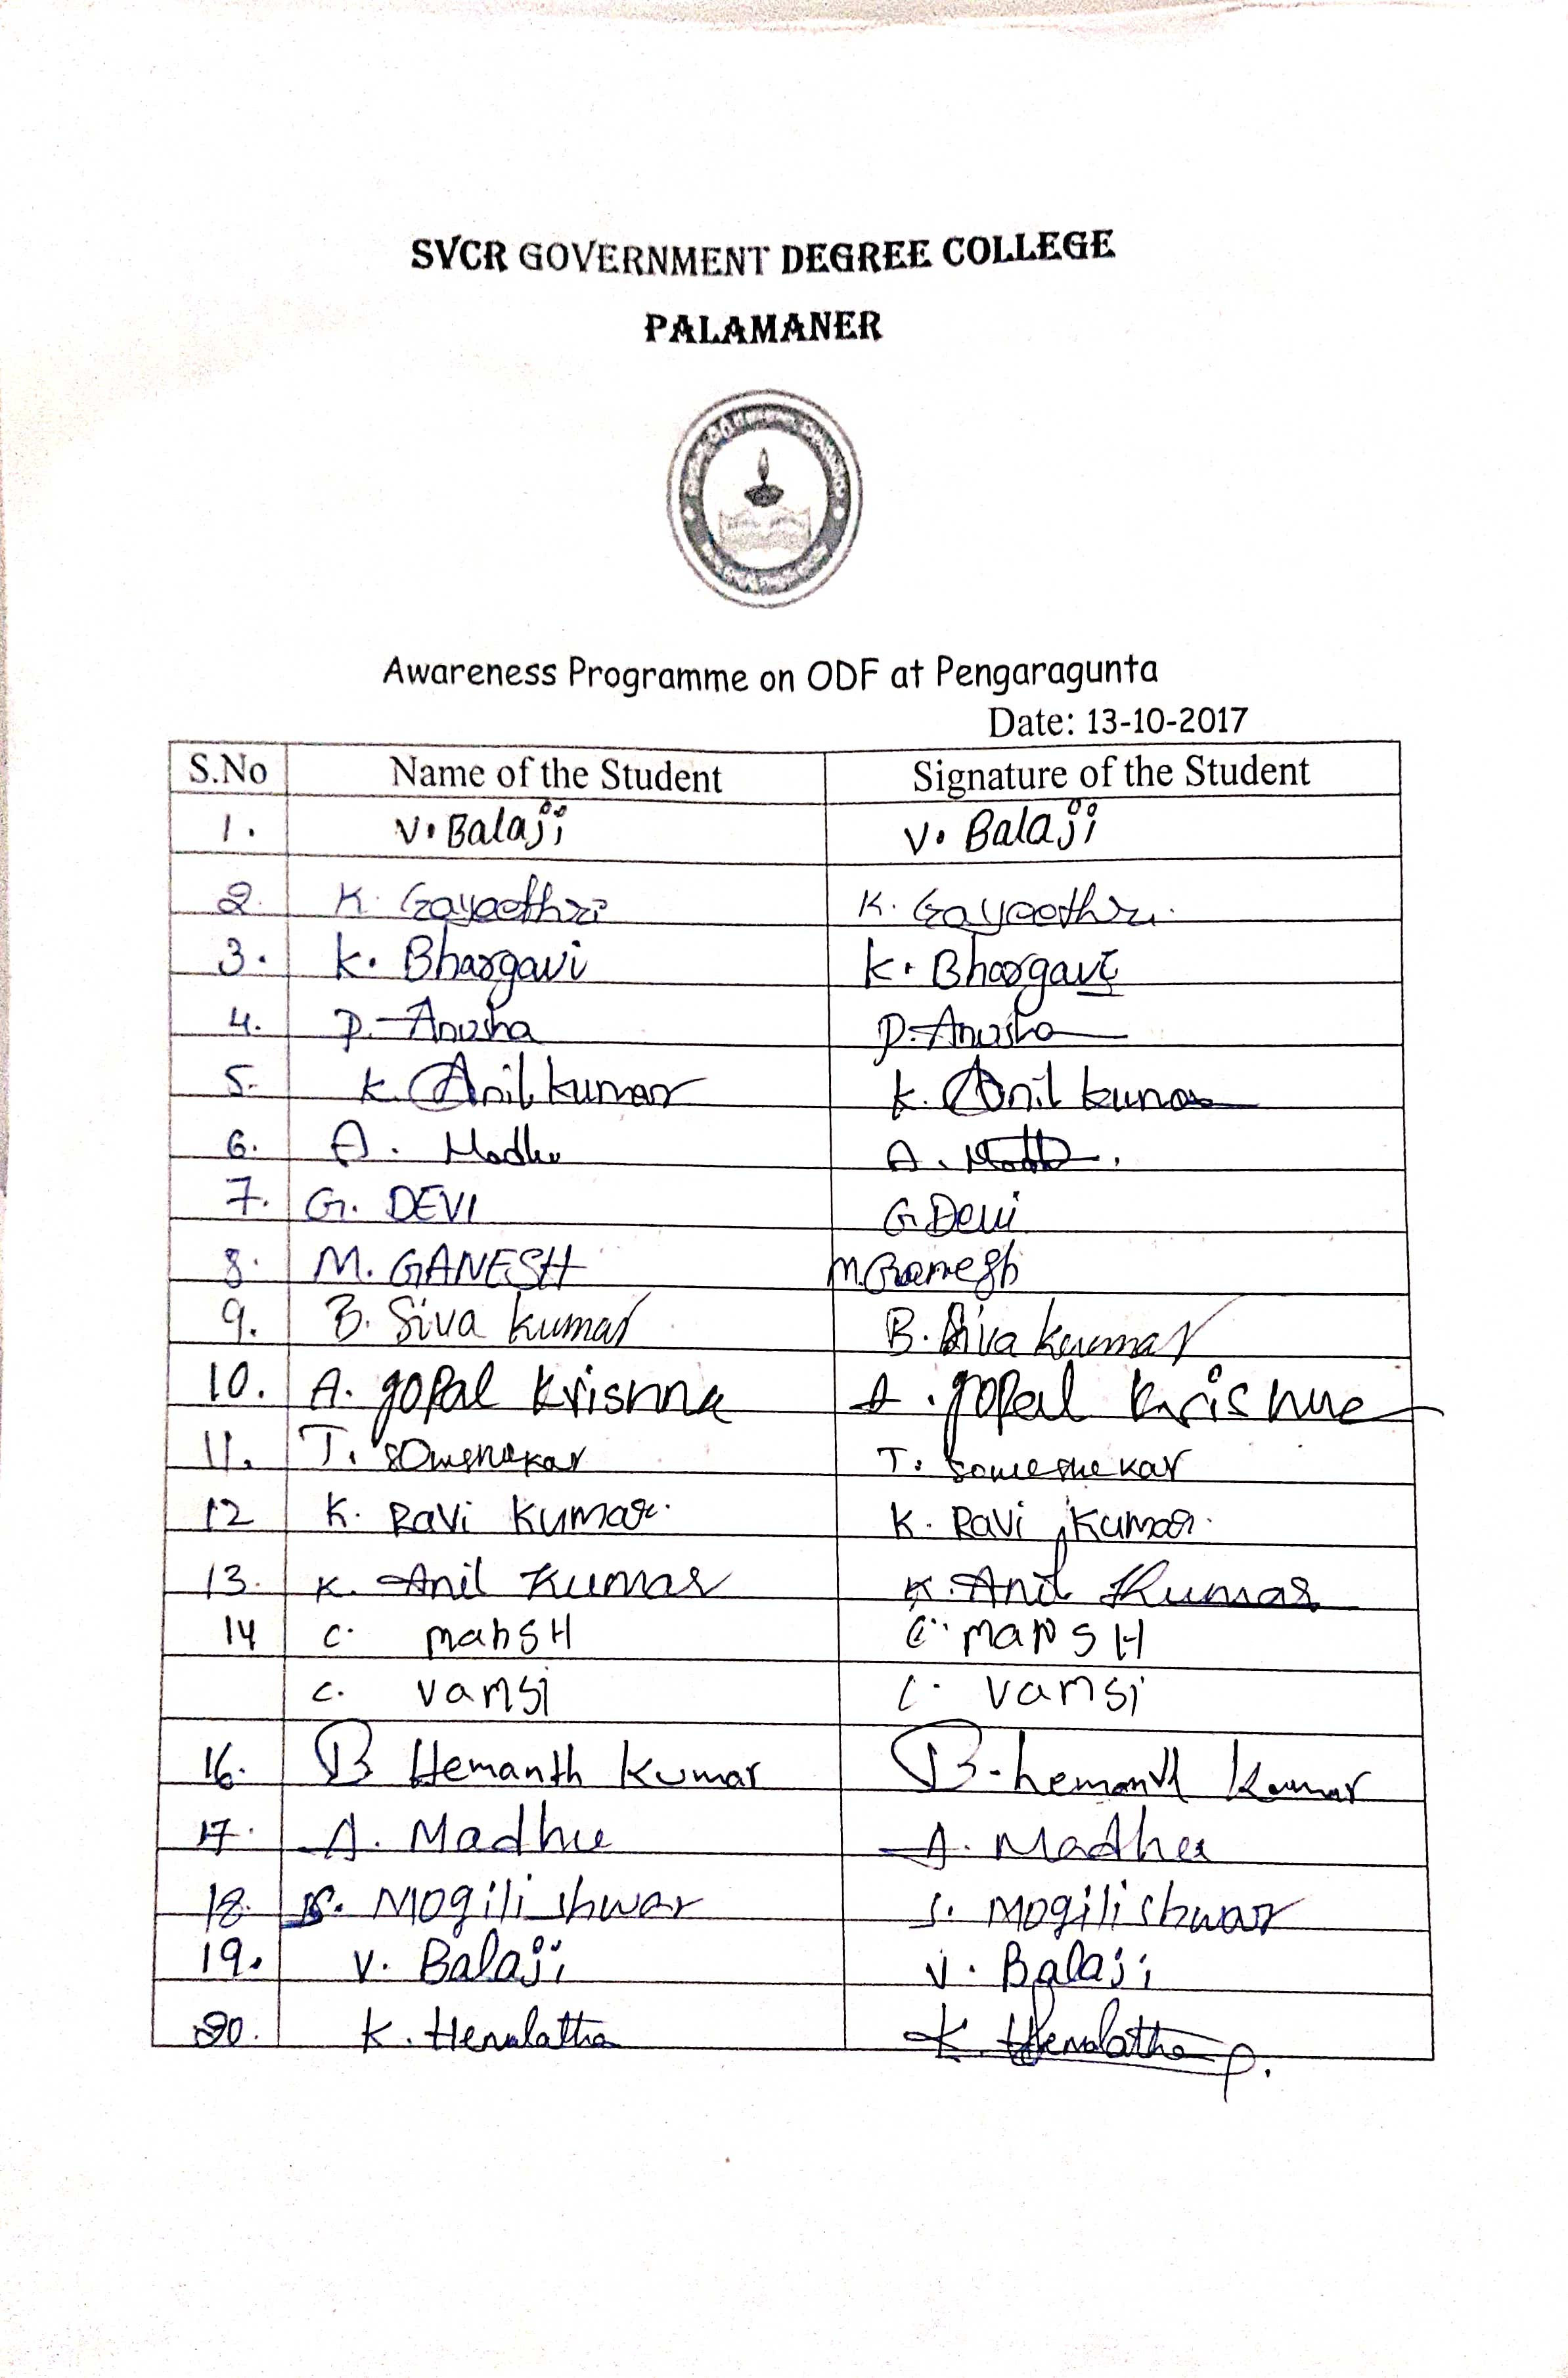 SVCR GOVERNMENT DEGREE COLLEGE
PALAMANER
Awareness Programme on ODF at Pengaragunta
Date: 13-10-2017
S.No Name of the Student Signature of the Student
1. V. Balaji V. Balaji
2. K. Gayaethri K. Gayaethri.
3. K. Bhargavi K. Bhargavi
4. P. Anusha P. Anusha
5. K. Anil kumar K. Anil kumar
6. A. Madhu A.
7. G. DEVI G. Devi
8. M. GANESH M. Ganesh
9. B. Siva kumar B. Siva kumar
10. A. gopal Krishna A. gopal Krishna
11. T. Somshekar T. Someshekar
12 K. Ravi Kumar. K. Ravi Kumar.
13. K. Anil Kumar K. Anil Kumar
14 C. C.
C. vamsi C. vamsi
16. B Hemanth Kumar B. hemanth Kumar
17. A. Madhu A. Madhu
18. S. Mogilishwar S. Mogilishwar
19. V. Balaji V. Balaji
20. K. Hemalatha K. Hemalatha